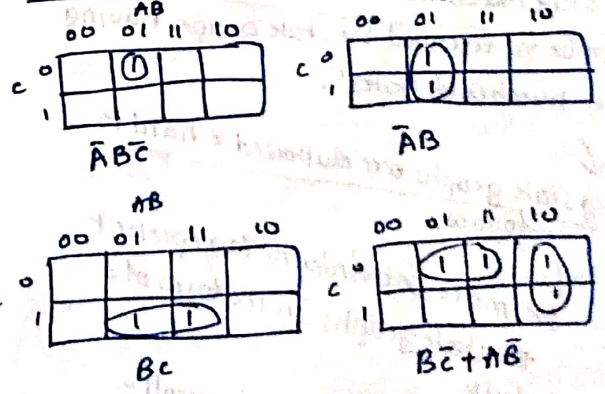 AB
00 01 11 10
C 0 1
1
ĀBC̄
00 01 11 10
C 0 1
1 1
ĀB
AB
00 01 11 10
0
1 1 1
BC
00 01 11 10
C 0 1 1 1
1 1
BC̄+AB̄